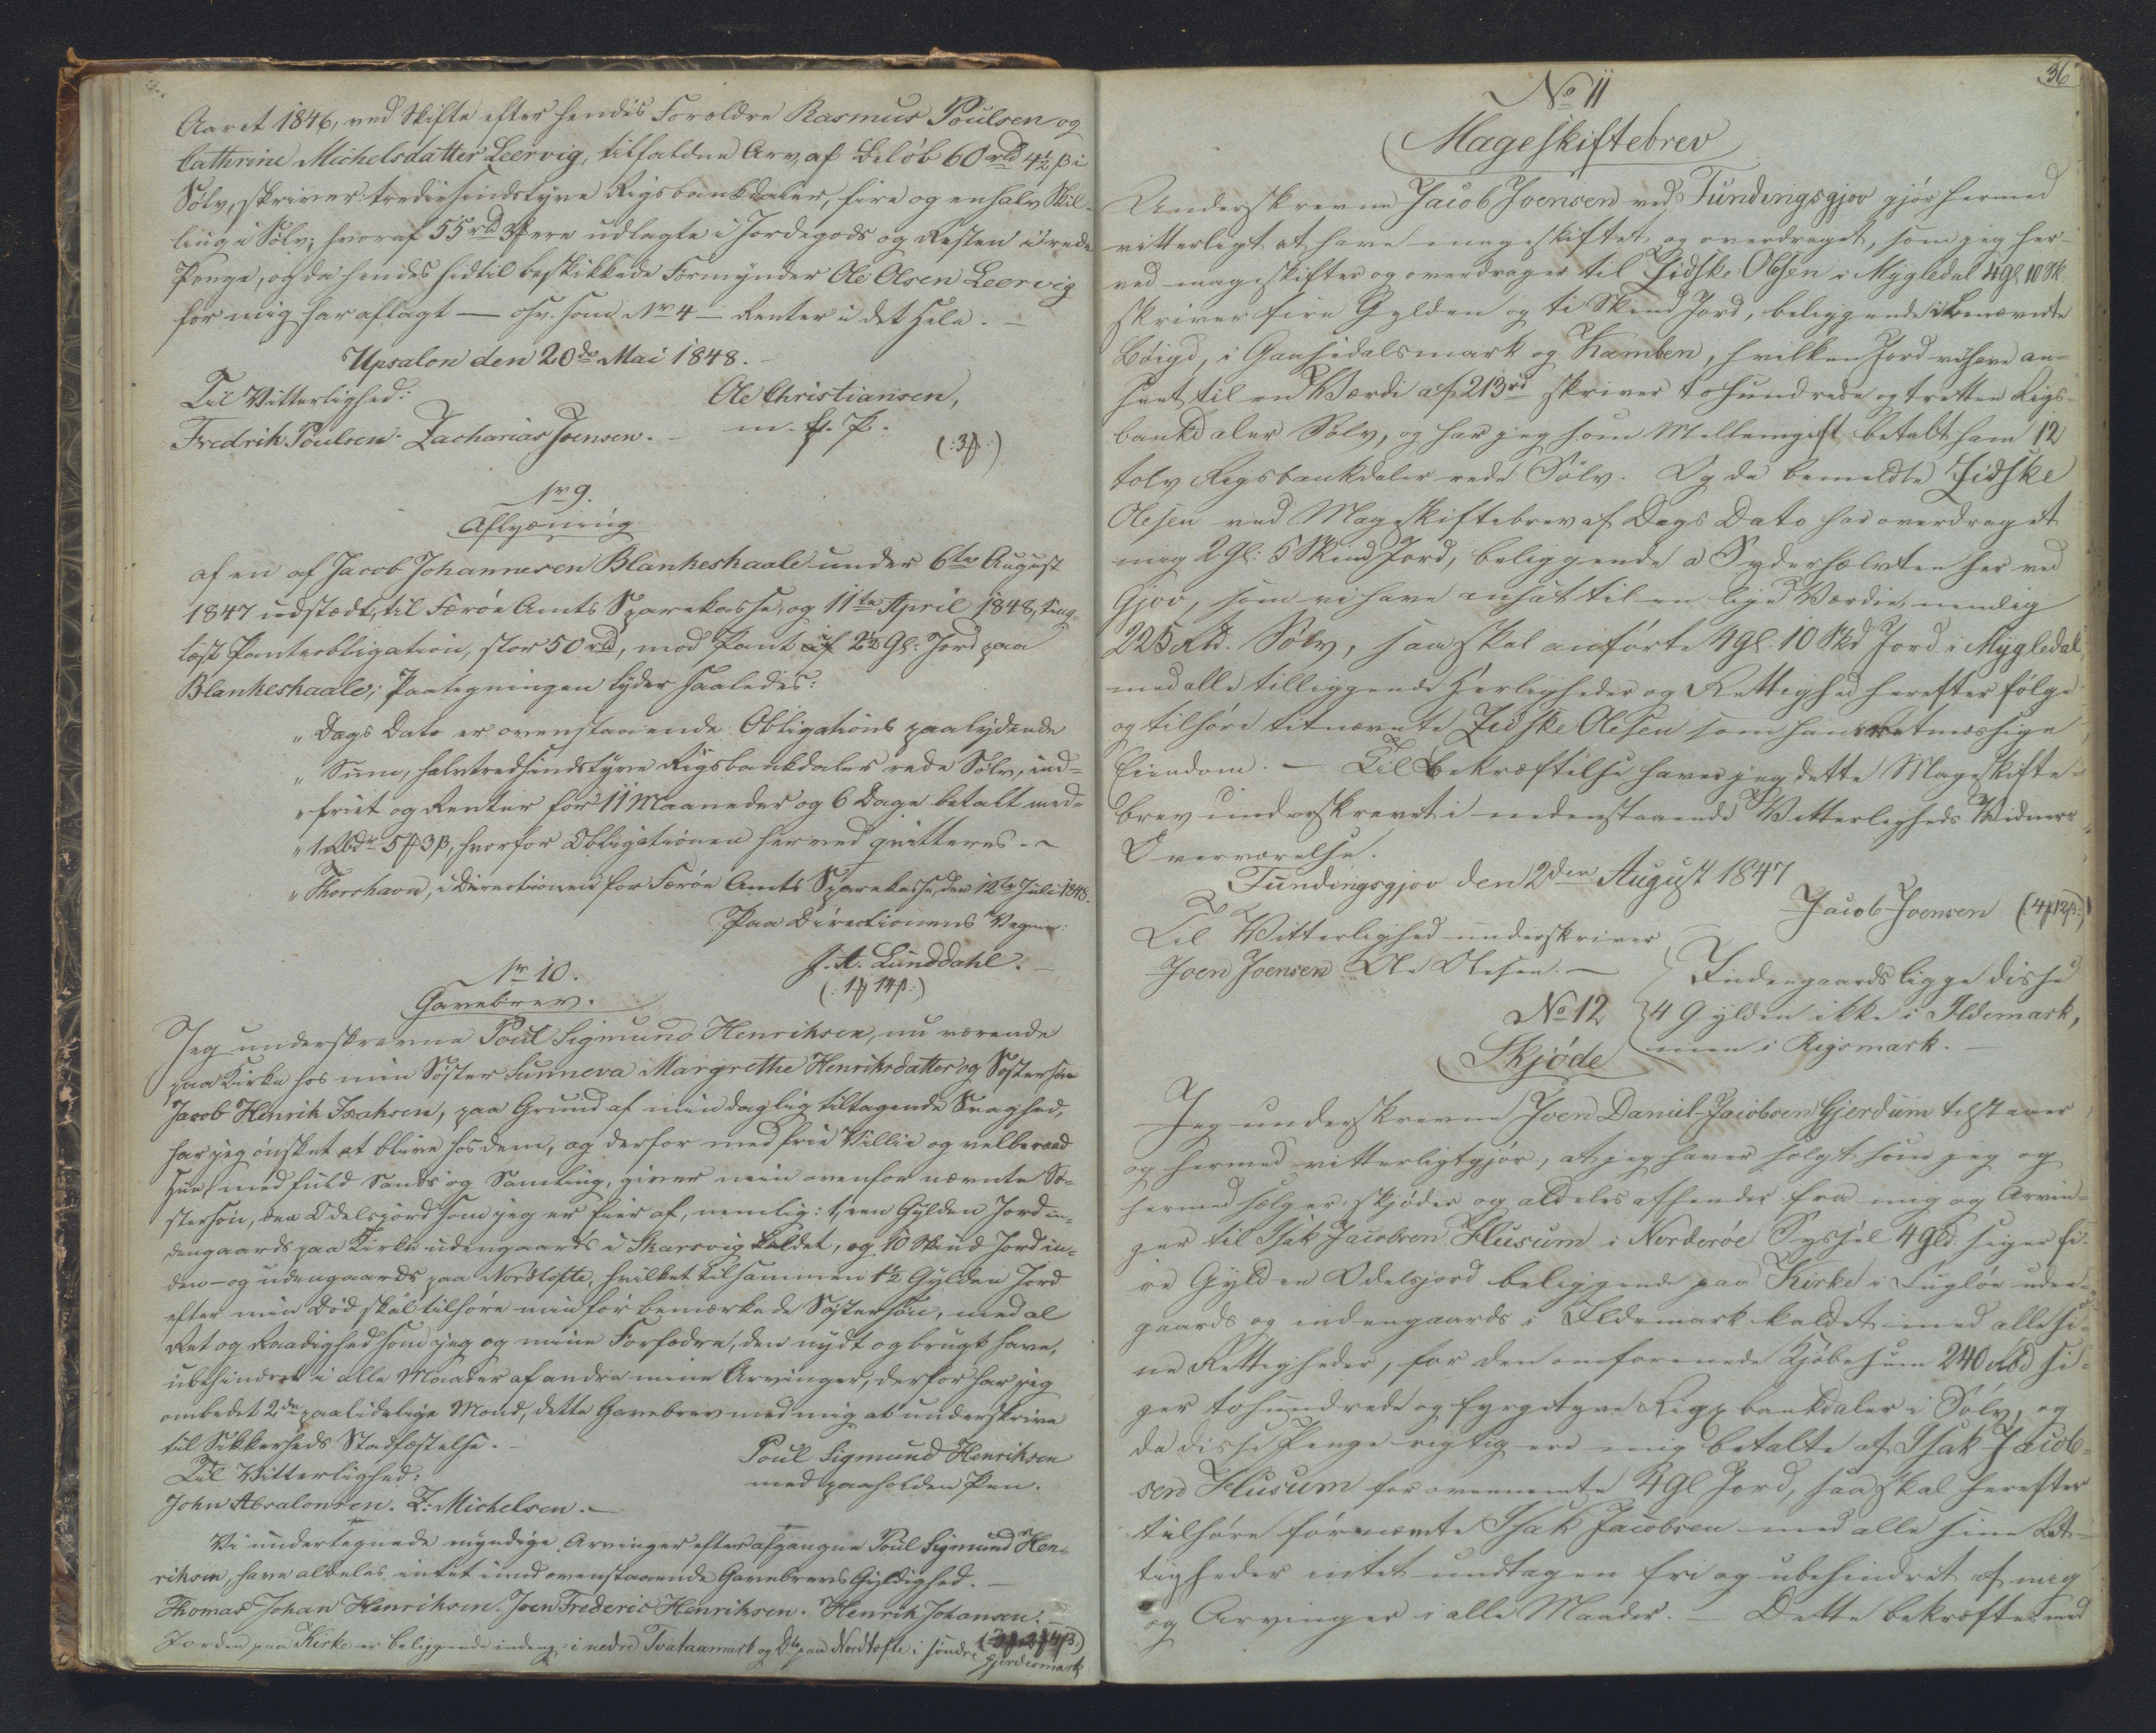 Aaret 1846, ved Skifte efter hendes Forældre Rasmus Poulsen og
Cathrine Michelsdatter Leervig, tilfaldne Arv af Beløb 60 rd 4½ ß i
Sølv, skriver: tredsindstyve Rigsbankdaler, fire og en halv Skil-
ling i Sølv; hvoraf 55 rd 3 ere udlagte i Jordegods og Resten i rede
Penge, og da hendes hidtil beskikkede Formynder Ole Olsen Leervig
for mig har aflagt — osv. som Nr 4 — Renter i det Hele. —
Upsalon den 20de Mai 1848. —
Til Vitterlighed: Ole Christiansen,
Fredrik Poulsen. Zacharias Joensen. — m. f. P.
Nr 9.
Aflysning
af en af Jacob Johannesen Blankeskaale under 6te August
1847 udstædt, til Færöe Amts Sparekasse, og 11te April 1848, ting-
læst Panteobligation, stor 50 rd, mod Pant i 2½ Gl. Jord paa
Blankeskaale; Paategningen lyder saaledes:
" Dags Dato er ovenstaaende Obligations paalydende
" Sum, halvtredsindstyve Rigsbankdaler rede Sølv, ind-
" friet og Renter for 11 Maaneder og 6 Dage betalt med
" 1 Rbdr 5 3 ß, hvorfor Obligationen herved qvitteres. —
" Thorshavn, i Directionen for Færöe Amts Sparekasse, den 12te Juli 1848.
Paa Directionens Vegne:
J. A. Lunddahl. —
Nr 10.
Gavebrev.
Jeg underskrevne Poul Sigmund Henriksen, nu værende
paa Kirke hos min Søster Sunneva Margrethe Henriksdatter og Søstersøn
Jacob Henrik Isaksen, paa Grund af min daglig tiltagende Svaghed,
har jeg ønsket at blive hos dem, og derfor med frie Villie og velberaad
Hu, med fuld Sands og Samling, giver min ovenfor nævnte Sø-
stersøn, den Odelsjord som jeg er Eier af, nemlig: 1, een Gylden Jord in-
dengaards paa Kirke udengaards i Skarsvig kaldet, og 10 Skind Jord in-
den- og udengaards paa Nordtofte, hvilket tilsammen 1½ Gylden Jord
efter min Død skal tilhøre min før bemærkede Søstersøn, med al
Ret og Raadighed som jeg og mine Forfædre, den nydt og brugt have,
ubehindret i alle Maader af andre mine Arvinger, derfor har jeg
ombedet 2de paalidelige Mænd, dette Gavebrev med mig at underskrive
til Sikkerheds Stadfæstelse. —
Poul Sigmund Henriksen
Til Vitterlighed: med paaholden Pen.
John Absalonsen. Z. Michelsen. —
Vi undertegnede myndige Arvinger efter afgangne Poul Sigmund Hen-
riksen, have aldeles intet imod ovenstaaende Gavebrevs Gyldighed. —
Thomas Johan Henriksen. Joen Frederic Henriksen. Henrik Johansen.
Jorden paa Kirke er beliggende indeng: i nedre Tvataamark og Do paa Nordtofte i søndre Gjerdesmark
36
No 11
Mageskiftebrev
Underskrevne Jacob Joensen ved Fundingsgjov gjør hermed
vitterligt at have mageskiftet og overdraget, som jeg her-
ved mageskifter og overdrager til Zidske Olesen i Mygledal 4 gl 10 Sk.
skriver fire Gylden og ti Skind Jord, beliggende i benævnte
Bøigd, i Gaasedalsmark og Kamben, hvilken Jord vi have an-
seet til en Værdi af 213 rd skriver to hundrede og tretten Rigs-
bankdaler Sølv, og har jeg som Mellemgift betalt ham 12
tolv Rigsbankdaler rede Sølv. Og da bemeldte Zidske
Olesen ved Mageskiftebrev af Dags Dato har overdraget
mig 2 Gl: 5 Skind Jord, beliggende i Syderhælvten her ved
Gjov, som vi have ansat til en lige Værdie, nemlig
225 Rd. Sølv, saa skal anførte 4 gl. 10 Skd Jord i Mygledal
med alle tilliggende Herligheder og Rettighed herefter følge
og tilhøre titnævnte Zidske Olesen som hans retmæssige
Eiendom. — Til Bekræftelse haver jeg dette Mageskifte-
brev underskrevet i nedenstaaende Vitterligheds Vidners
Overværelse.
Fundingsgjov den 2den August 1847
Jacob Joensen
Til Vitterlighed underskriver
Joen Joensen Ole Olesen. —
Indengaards ligge disse
4 Gylden ikke i Ildemark,
men i Rigsmark. —
No 12
Skjøde
Jeg underskrevne Joen Daniel Jacobsen Gjerdum tilstaaer
og hermed vitterligtgjør, at jeg haver solgt som jeg og
hermed sælger, skjøder og aldeles afhender fra mig og Arvin-
ger til Isak Jacobsen Husum i Norderöe Syssel 4 Gld siger fi-
re Gylden Odelsjord beliggende paa Kirke i Fuglöe uden-
gaards og indengaards i Ildemark kaldet med alle si-
ne Rettigheder, for den omforenede Kjøbesum 240 Rbd si-
ger tohundrede og fyrgetyve Rigsbankdaler i Sølv, og
da disse Penge rigtig ere mig betalte af Isak Jacob-
sen Husum for ovennævnte 4 gl Jord, saa skal herefter
tilhøre førnævnte Isak Jacobsen med alle sine Ret-
tigheder intet undtagen fri og ubehindret af mig
og Arvinger i alle Maader. — Dette bekræftes med